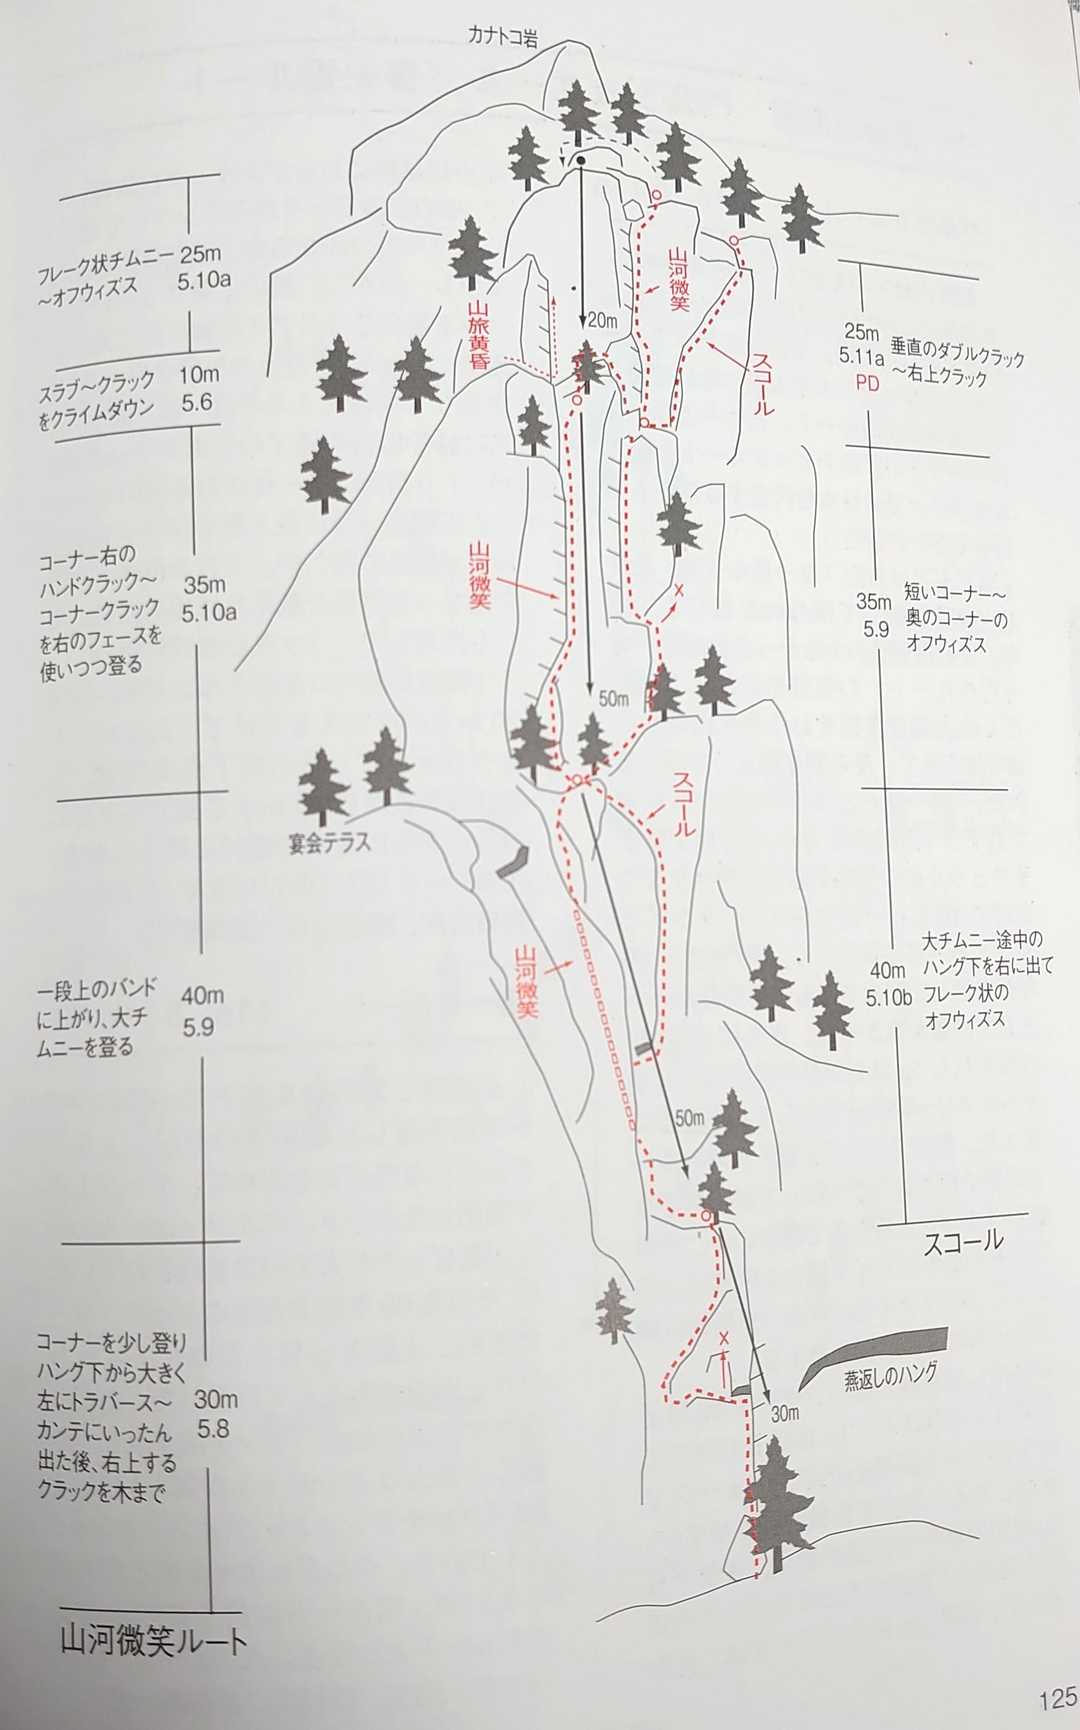 カナトコ岩
フレーク状チムニー
～オフウィズス
25m
5.10a
スラブ～クラック
をクライムダウン
10m
5.6
コーナー右の
ハンドクラック～
コーナークラック
を右のフェースを
使いつつ登る
35m
5.10a
一段上のバンド
に上がり、大チ
ムニーを登る
40m
5.9
コーナーを少し登り
ハング下から大きく
左にトラバース～
カンテにいったん
出た後、右上する
クラックを木まで
30m
5.8
山河微笑ルート
山旅黄昏
20m
山河微笑
スコール
山河微笑
X
50m
スコール
宴会テラス
山河微笑
50m
X
30m
25m
5.11a
PD
垂直のダブルクラック
～右上クラック
35m
5.9
短いコーナー～
奥のコーナーの
オフウィズス
40m
5.10b
大チムニー途中の
ハング下を右に出て
フレーク状の
オフウィズス
スコール
燕返しのハング
125